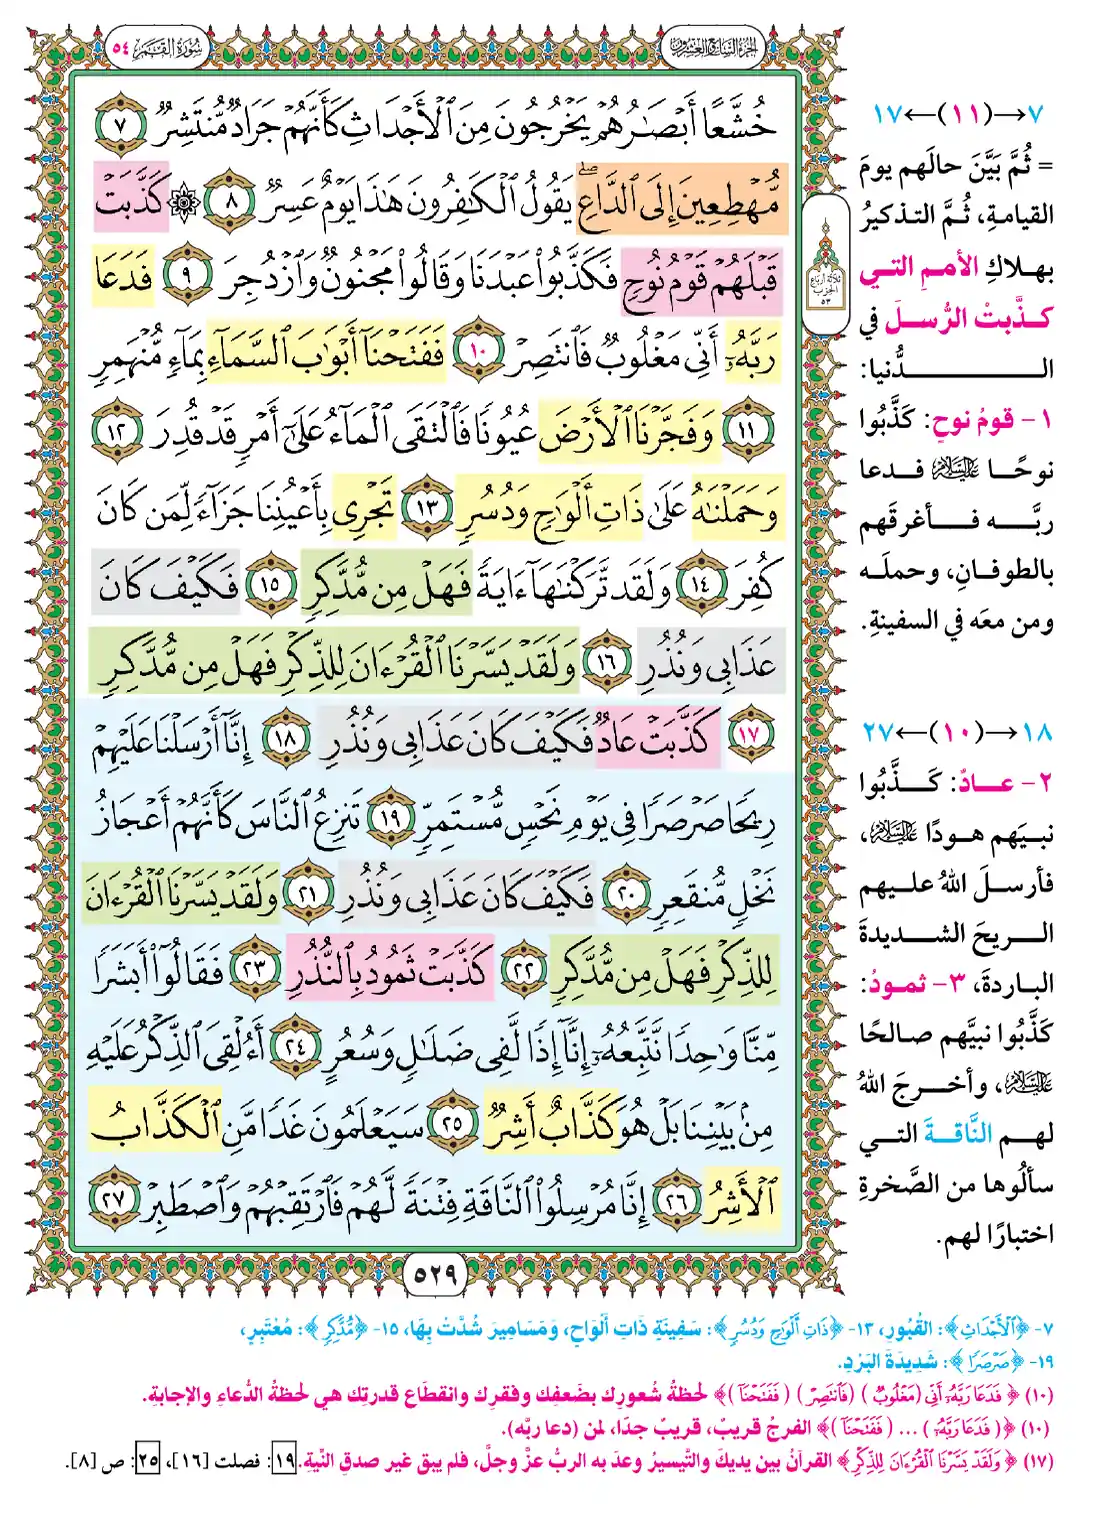 الجزء السابع والعشرون
سورة القمر ٥٤
خُشَّعًا أَبْصَٰرُهُمْ يَخْرُجُونَ مِنَ ٱلْأَجْدَاثِ كَأَنَّهُمْ جَرَادٌ مُّنتَشِرٌ ٧
مُّهْطِعِينَ إِلَى ٱلدَّاعِ ۖ يَقُولُ ٱلْكَٰفِرُونَ هَٰذَا يَوْمٌ عَسِرٌ ٨ ۞ كَذَّبَتْ
قَبْلَهُمْ قَوْمُ نُوحٍ فَكَذَّبُوا۟ عَبْدَنَا وَقَالُوا۟ مَجْنُونٌ وَٱزْدُجِرَ ٩ فَدَعَا
رَبَّهُۥٓ أَنِّى مَغْلُوبٌ فَٱنتَصِرْ ١٠ فَفَتَحْنَآ أَبْوَٰبَ ٱلسَّمَآءِ بِمَآءٍ مُّنْهَمِرٍ
١١ وَفَجَّرْنَا ٱلْأَرْضَ عُيُونًا فَٱلْتَقَى ٱلْمَآءُ عَلَىٰٓ أَمْرٍ قَدْ قُدِرَ ١٢
وَحَمَلْنَٰهُ عَلَىٰ ذَاتِ أَلْوَٰحٍ وَدُسُرٍ ١٣ تَجْرِى بِأَعْيُنِنَا جَزَآءً لِّمَن كَانَ
كُفِرَ ١٤ وَلَقَد تَّرَكْنَٰهَآ ءَايَةً فَهَلْ مِن مُّدَّكِرٍ ١٥ فَكَيْفَ كَانَ
عَذَابِى وَنُذُرِ ١٦ وَلَقَدْ يَسَّرْنَا ٱلْقُرْءَانَ لِلذِّكْرِ فَهَلْ مِن مُّدَّكِرٍ
١٧ كَذَّبَتْ عَادٌ فَكَيْفَ كَانَ عَذَابِى وَنُذُرِ ١٨ إِنَّآ أَرْسَلْنَا عَلَيْهِمْ
رِيحًا صَرْصَرًا فِى يَوْمِ نَحْسٍ مُّسْتَمِرٍّ ١٩ تَنزِعُ ٱلنَّاسَ كَأَنَّهُمْ أَعْجَازُ
نَخْلٍ مُّنقَعِرٍ ٢٠ فَكَيْفَ كَانَ عَذَابِى وَنُذُرِ ٢١ وَلَقَدْ يَسَّرْنَا ٱلْقُرْءَانَ
لِلذِّكْرِ فَهَلْ مِن مُّدَّكِرٍ ٢٢ كَذَّبَتْ ثَمُودُ بِٱلنُّذُرِ ٢٣ فَقَالُوٓا۟ أَبَشَرًا
مِّنَّا وَٰحِدًا نَّتَّبِعُهُۥٓ إِنَّآ إِذًا لَّفِى ضَلَٰلٍ وَسُعُرٍ ٢٤ أَءُلْقِىَ ٱلذِّكْرُ عَلَيْهِ
مِنۢ بَيْنِنَا بَلْ هُوَ كَذَّابٌ أَشِرٌ ٢٥ سَيَعْلَمُونَ غَدًا مَّنِ ٱلْكَذَّابُ
ٱلْأَشِرُ ٢٦ إِنَّا مُرْسِلُوا۟ ٱلنَّاقَةِ فِتْنَةً لَّهُمْ فَٱرْتَقِبْهُمْ وَٱصْطَبِرْ ٢٧
٥٢٩
ثلاثة أرباع
الحزب
٥٣
٧→(١١)←١٧
= ثُمَّ بَيَّنَ حالَهم يومَ
القيامةِ، ثُمَّ التذكيرُ
بهلاكِ الأممِ التي
كذَّبتْ الرُّسلَ في
الدُّنيا:
١- قومُ نوحٍ: كَذَّبُوا
نوحًا عليه السلام فدعا
ربَّه فأغرقَهم
بالطوفانِ، وحملَه
ومن معَه في السفينةِ.
١٨→(١٠)←٢٧
٢- عادٌ: كَذَّبُوا
نبيَهم هودًا عليه السلام،
فأرسلَ اللهُ عليهم
الريحَ الشديدةَ
الباردةَ، ٣- ثمودُ:
كَذَّبُوا نبيَّهم صالحًا
عليه السلام، وأخرجَ اللهُ
لهم النَّاقةَ التي
سألُوها من الصَّخرةِ
اختبارًا لهم.
٧- ﴿ٱلْأَجْدَاثِ﴾: القُبُورِ، ١٣- ﴿ذَاتِ أَلْوَٰحٍ وَدُسُرٍ﴾: سَفِينَةٍ ذَاتِ أَلْوَاحٍ، وَمَسَامِيرَ شُدَّتْ بِهَا، ١٥- ﴿مُّدَّكِرٍ﴾: مُعْتَبِرٍ،
١٩- ﴿صَرْصَرًا﴾: شَدِيدَةَ البَرْدِ.
(١٠) ﴿فَدَعَا رَبَّهُۥٓ أَنِّى (مَغْلُوبٌ) (فَٱنتَصِرْ) (فَفَتَحْنَآ)﴾ لحظةُ شُعورِك بضَعفِك وفقرِك وانقطَاعِ قدرتِك هي لحظةُ الدُّعاءِ والإجابةِ.
(١٠) ﴿(فَدَعَا رَبَّهُۥٓ) ... (فَفَتَحْنَآ)﴾ الفرجُ قريبٌ، قريبٌ جدًا، لمنْ (دعا ربَّه).
(١٧) ﴿وَلَقَدْ يَسَّرْنَا ٱلْقُرْءَانَ لِلذِّكْرِ﴾ القرآنُ بين يديكَ والتَّيسيرُ وعدَ به الربُّ عزَّ وجلَّ، فلم يبقَ غير صدقِ النِّيةِ. ١٩: فصلت [١٦]، ٢٥: ص [٨].